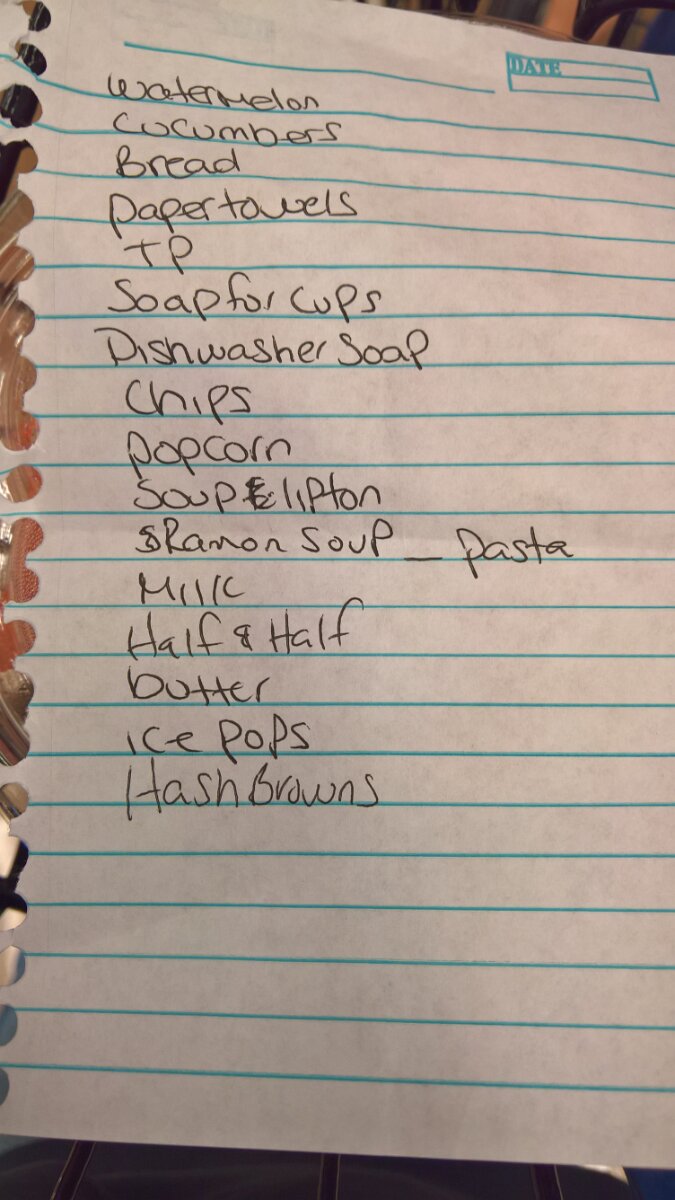 DATE
Watermelon
Cucumbers
Bread
Papertowels
TP
Soap for Cups
Dishwasher Soap
Chips
Popcorn
Soup Lipton
Ramon Soup _ Pasta
Milk
Half & Half
butter
ice pops
Hash Browns